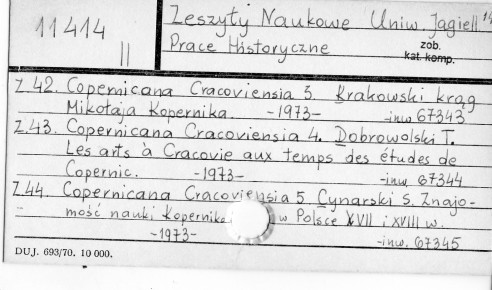 11414
II
Zeszyty Naukowe Uniw Jagiell
Prace Historyczne
zob.
kat. komp.
Z 42. Copernicana Cracoviensia 3. Krakowski krąg
Mikołaja Kopernika. -1973- -inw 67343
Z.43. Copernicana Cracoviensia 4. Dobrowolski T.
Les arts à Cracovie aux temps des études de
Copernic. -1973- -inw 67344
Z.44. Copernicana Cracoviensia 5. Cynarski S. Znajo-
mość nauki Kopernika w Polsce XVII i XVIII w.
-1973- -inw. 67345
DUJ. 693/70. 10 000.